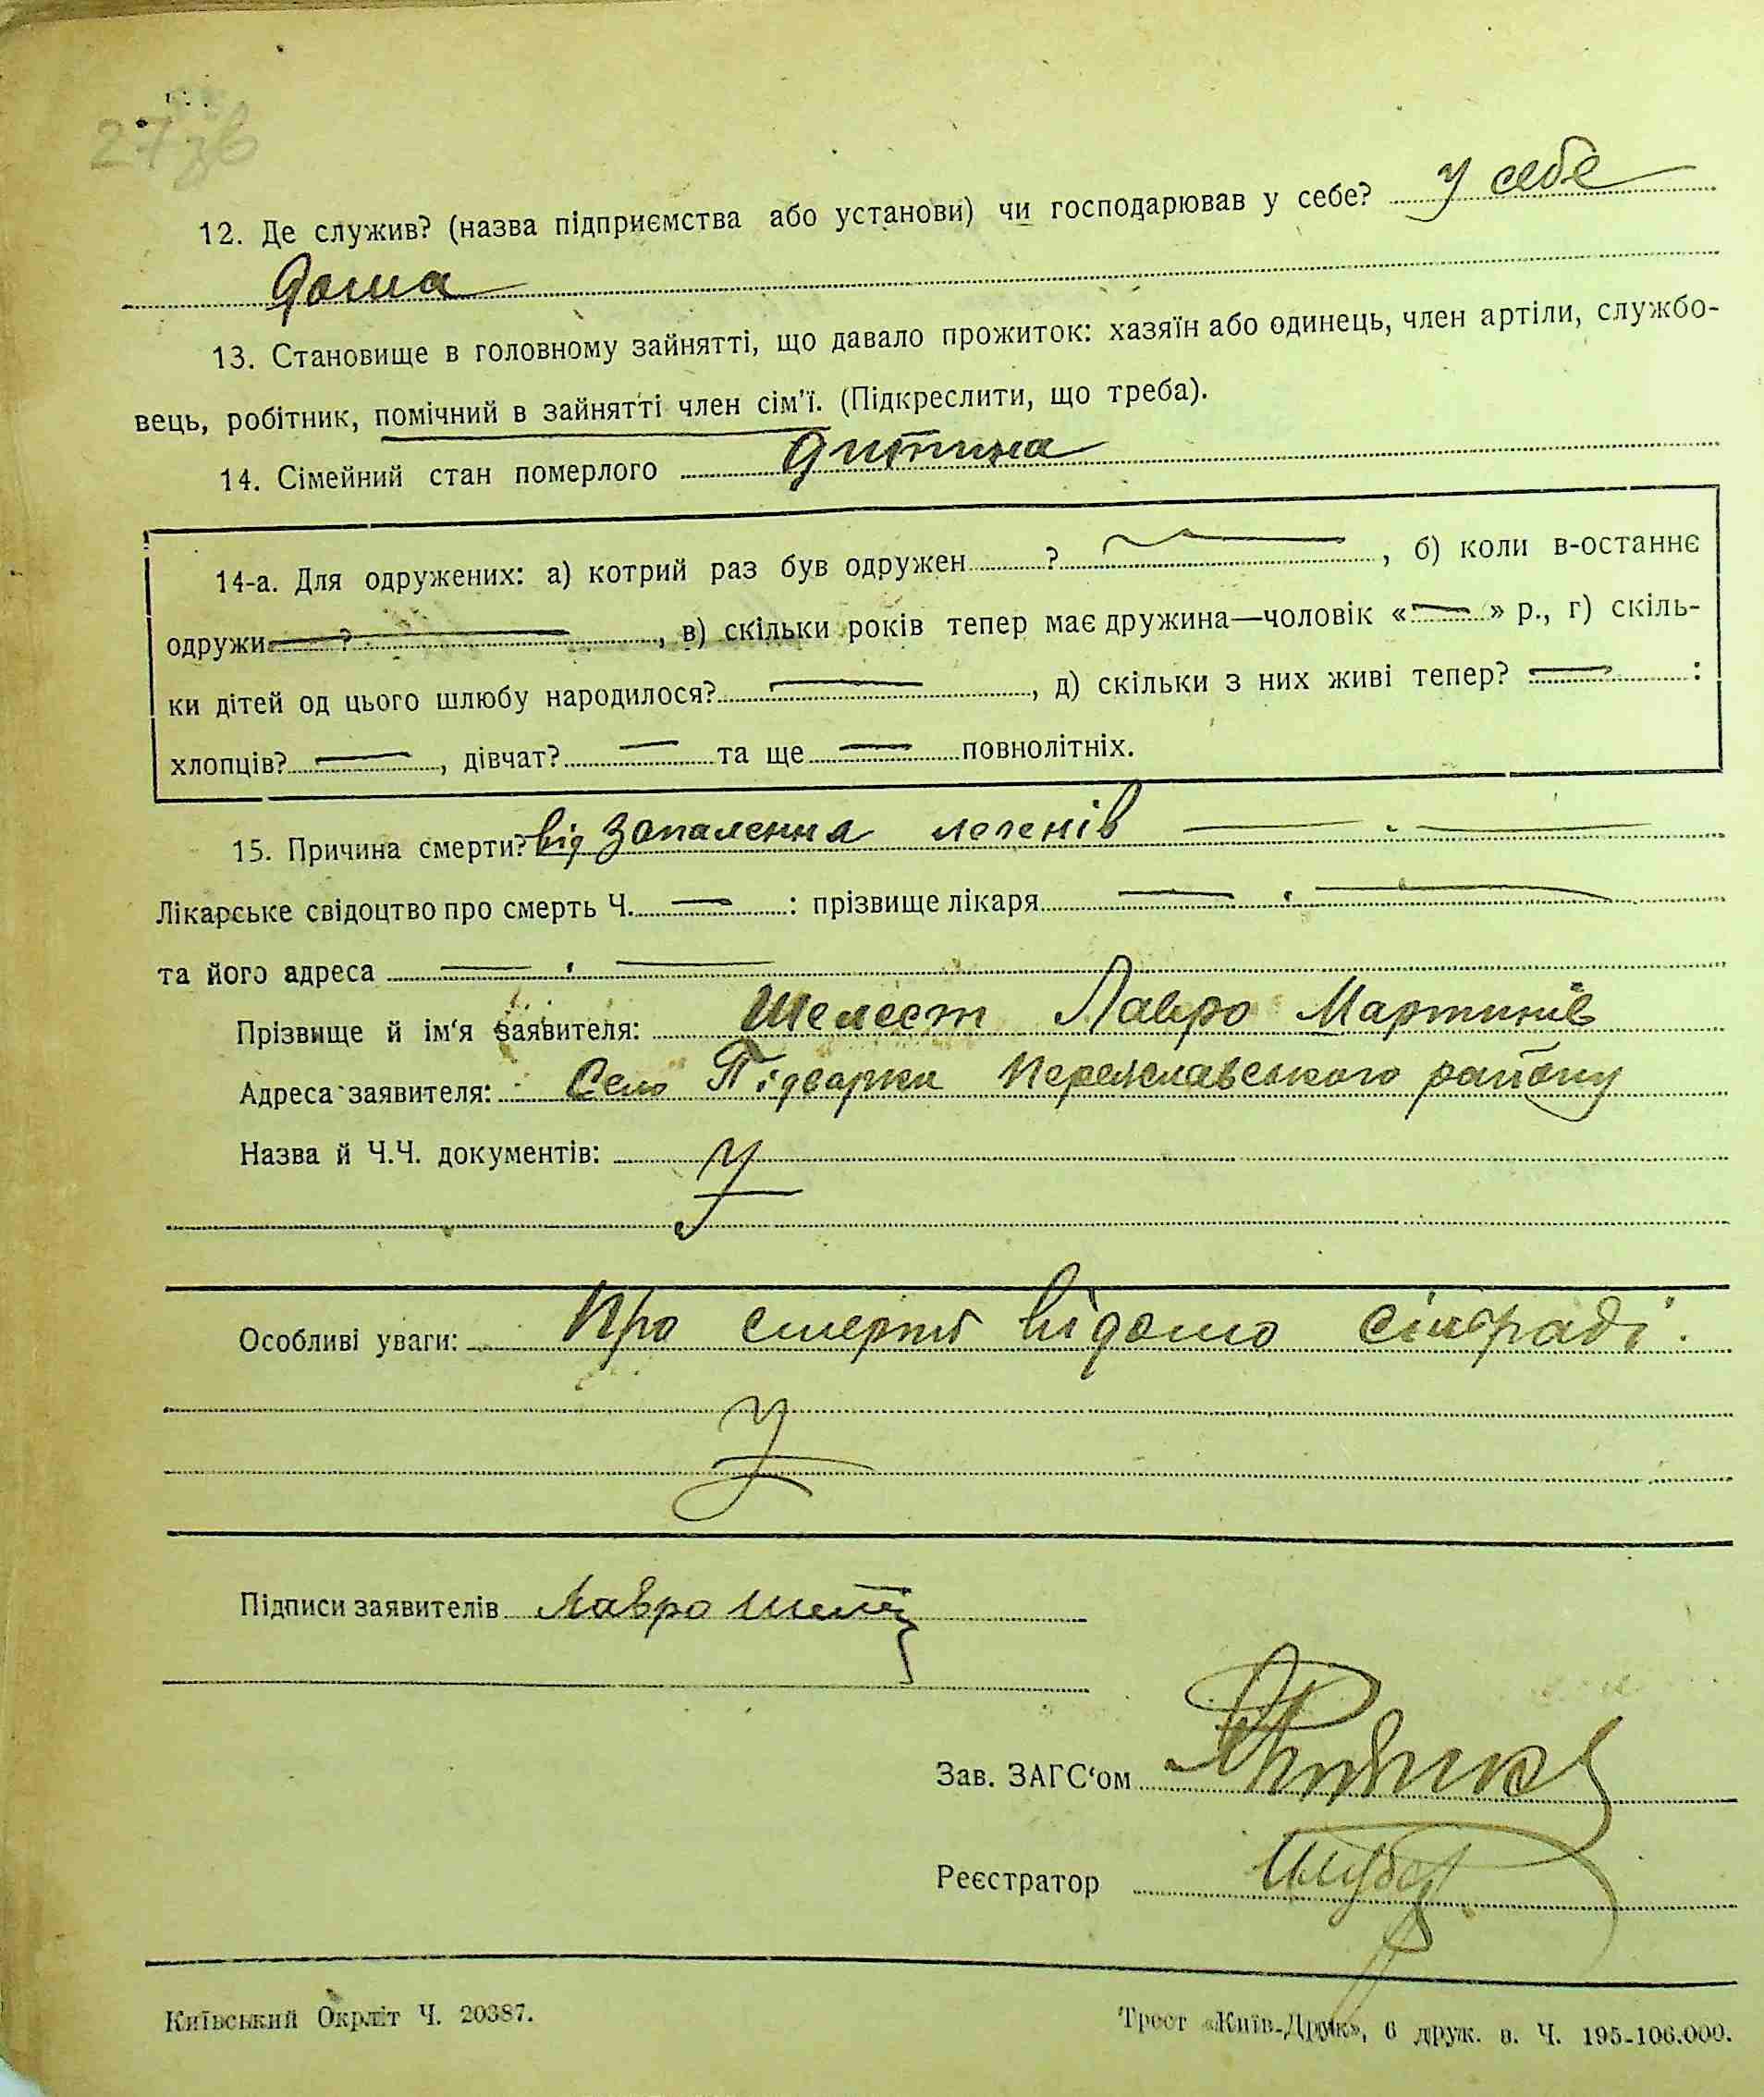 27 зв
12. Де служив? (назва підприємства або установи) чи господарював у себе? у себе
дома
13. Становище в головному зайнятті, що давало прожиток: хазяїн або одинець, член артіли, службо-
вець, робітник, помічний в зайнятті член сім'ї. (Підкреслити, що треба).
14. Сімейний стан померлого дитина
14-а. Для одружених: а) котрий раз був одружен ? , б) коли в-останнє
одружи ? , в) скільки років тепер має дружина—чоловік « — » р., г) скіль-
ки дітей од цього шлюбу народилося? — , д) скільки з них живі тепер? — :
хлопців? — , дівчат? — та ще — повнолітніх.
15. Причина смерти? від запалення легенів —
Лікарське свідоцтво про смерть Ч. — : прізвище лікаря —
та його адреса —
Прізвище й ім'я заявителя: Шелест Лавро Мартинів
Адреса заявителя: Село Підварки Переяславського району
Назва й Ч.Ч. документів:
Особливі уваги: Про смерть відомо сільраді.
Підписи заявителів Лавро Шелест
Зав. ЗАГС'ом
Реєстратор
Київський Окрліт Ч. 20387.
Трест «Київ-Друк», 6 друк. з. Ч. 195-106.000.